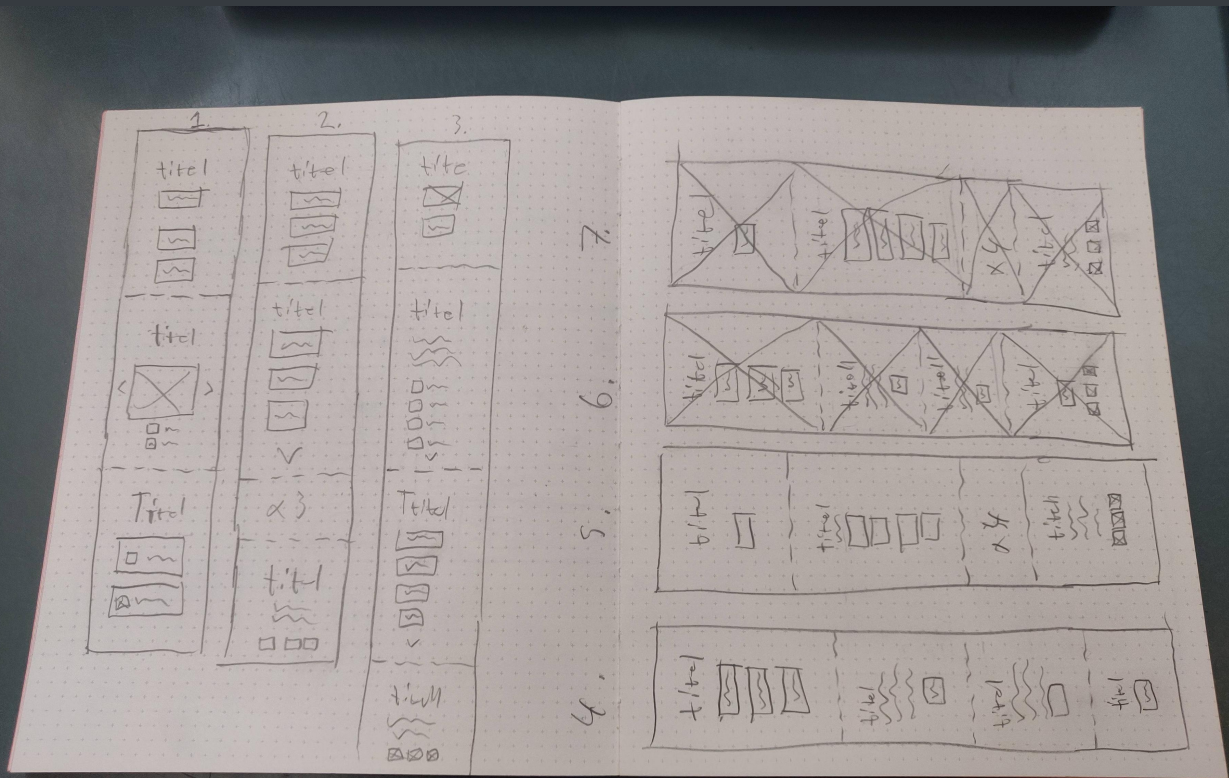 1.
titel
titel
Titel
2.
titel
titel
x3
titel
3.
tite
titel
Titel
titell
4.
titel
titel
titel
titel
5.
titel
titel
x4
titel
6.
titel
titel
titel
titel
7.
titel
titel
x4
titel